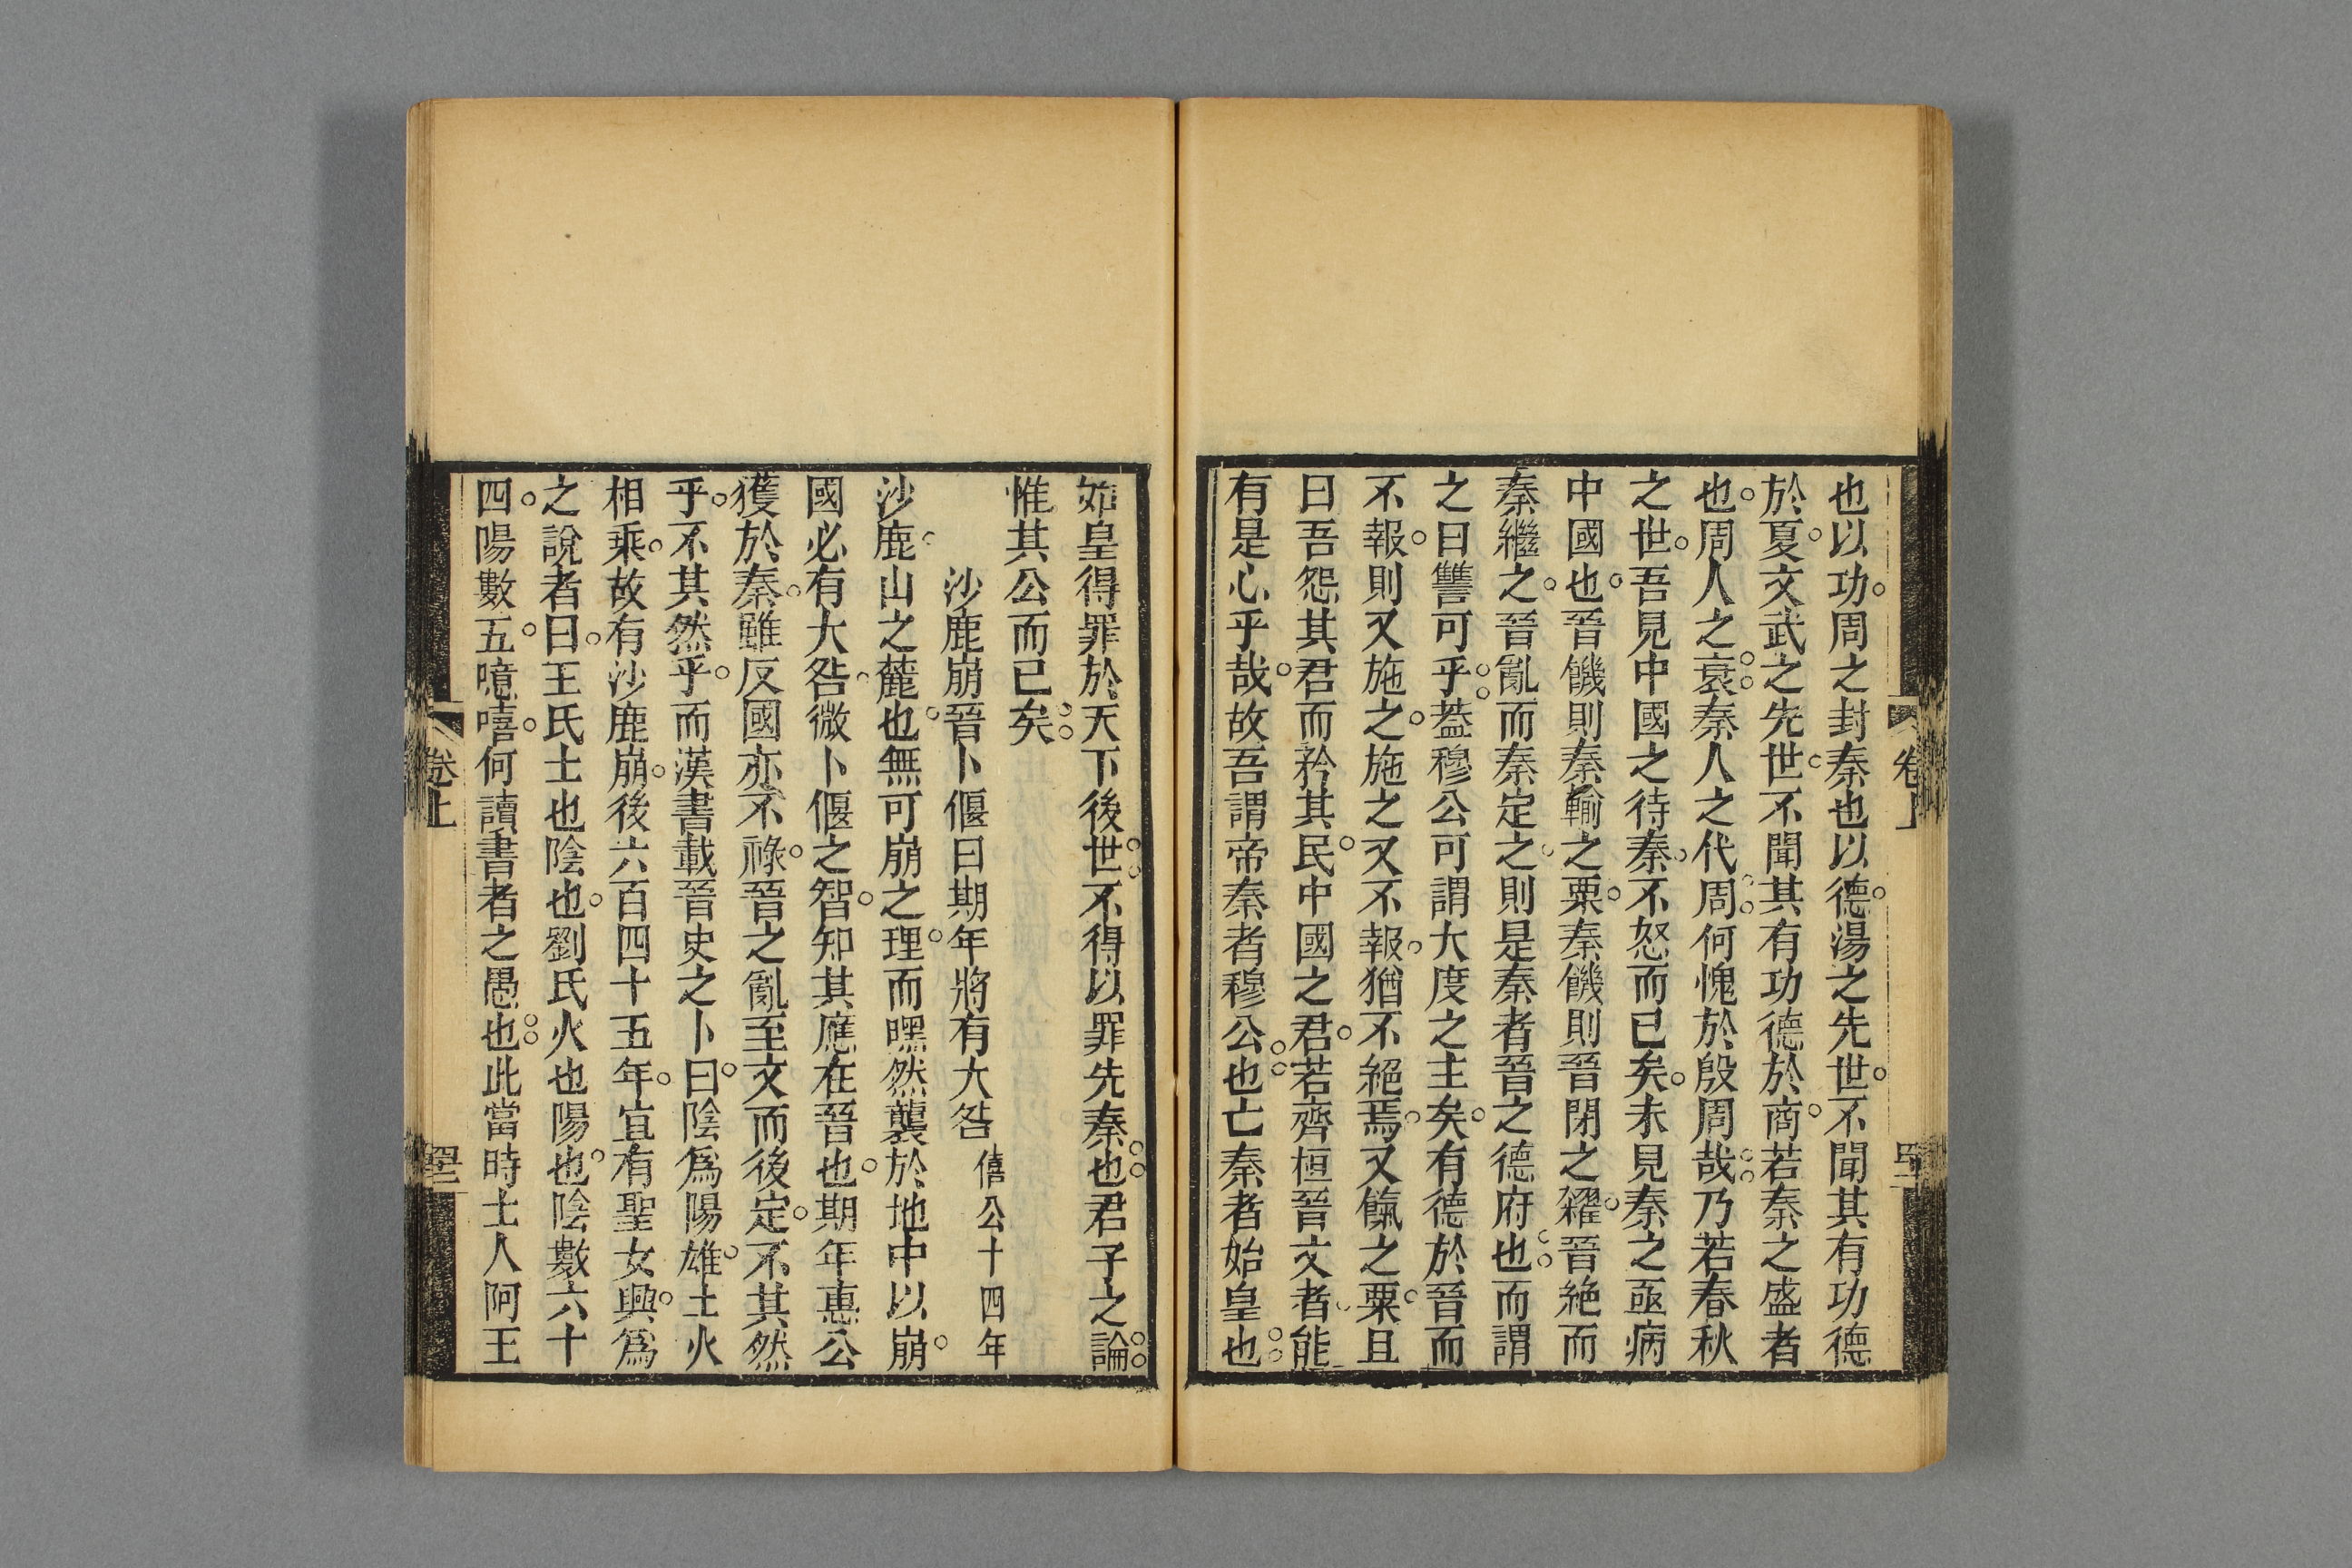 也以功周之封秦也以德湯之先世不聞其有功德
於夏文武之先世不聞其有功德於商若秦之盛者
也周人之衰秦人之代周何愧於殷周哉乃若春秋
之世吾見中國之待秦不怒而已矣未見秦之亟病
中國也晉饑則秦輸之粟秦饑則晉閉之糴晉絶而
秦繼之晉亂而秦定之則是秦者晉之德府也而謂
之曰讐可乎葢穆公可謂大度之主矣有德於晉而
不報則又施之施之又不報猶不絕焉又餼之粟且
曰吾怨其君而矜其民中國之君若齊桓晉文者能
有是心乎哉故吾謂帝秦者穆公也亡秦者始皇也
卷上
始皇得罪於天下後世不得以罪先秦也君子之論
惟其公而已矣
沙鹿崩晉卜偃曰期年將有大咎 僖公十四年
沙鹿山之麓也無可崩之理而嘿然襲於地中以崩
國必有大咎微卜偃之智知其應在晉也期年惠公
獲於秦雖反國亦不祿晉之亂至文而後定不其然
乎不其然乎而漢書載晉史之卜曰陰爲陽雄土火
相乘故有沙鹿崩後六百四十五年宜有聖女興爲
之說者曰王氏土也陰也劉氏火也陽也陰數六十
四陽數五噫嘻何讀書者之愚也此當時士人阿王
卷上